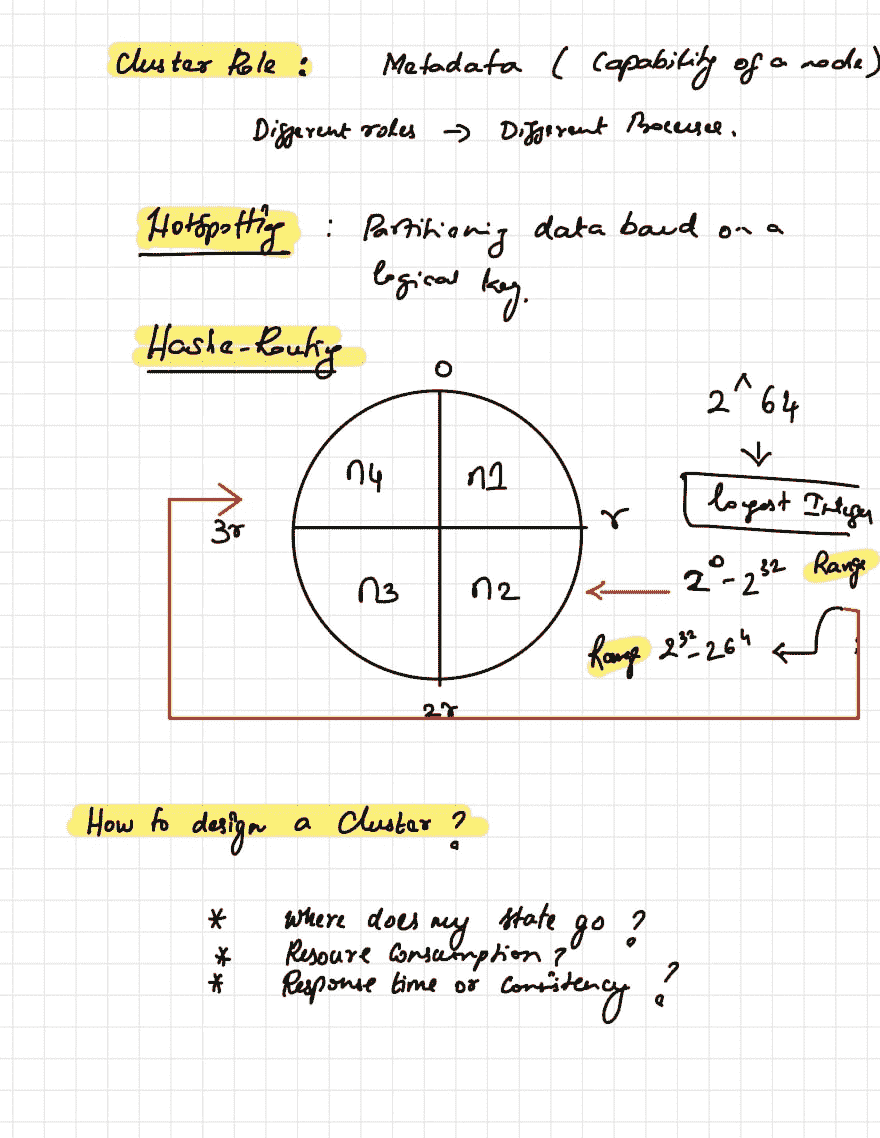 Cluster Role : Metadata ( Capability of a node)
Different roles → Different
Hotspotting : Partitioning data based on a
logical key.
Hashe-Routing
0
2^64
n4 n1
3r
r
Integer
n3 n2
2^0 - 2^32 Range
Range 2^32 - 2^64
2r
How to design a Cluster ?
* Where does my state go ?
* Resoure Consumption ?
* Response time or Consistency ?